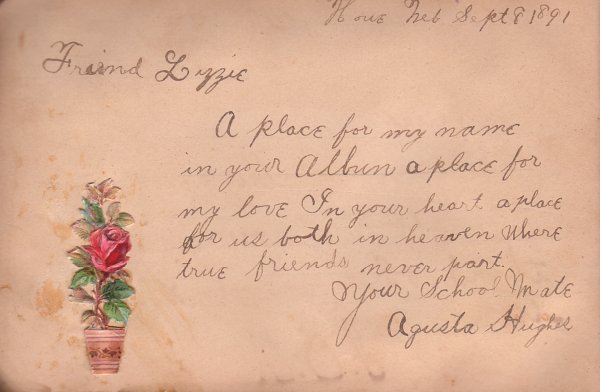 Howe Neb Sept 8 1891
Friend Lizzie
A place for my name
in your Album a place for
my love In your heart a place
for us both in heaven Where
true friends never part.
Your School Mate
Agusta Hughes